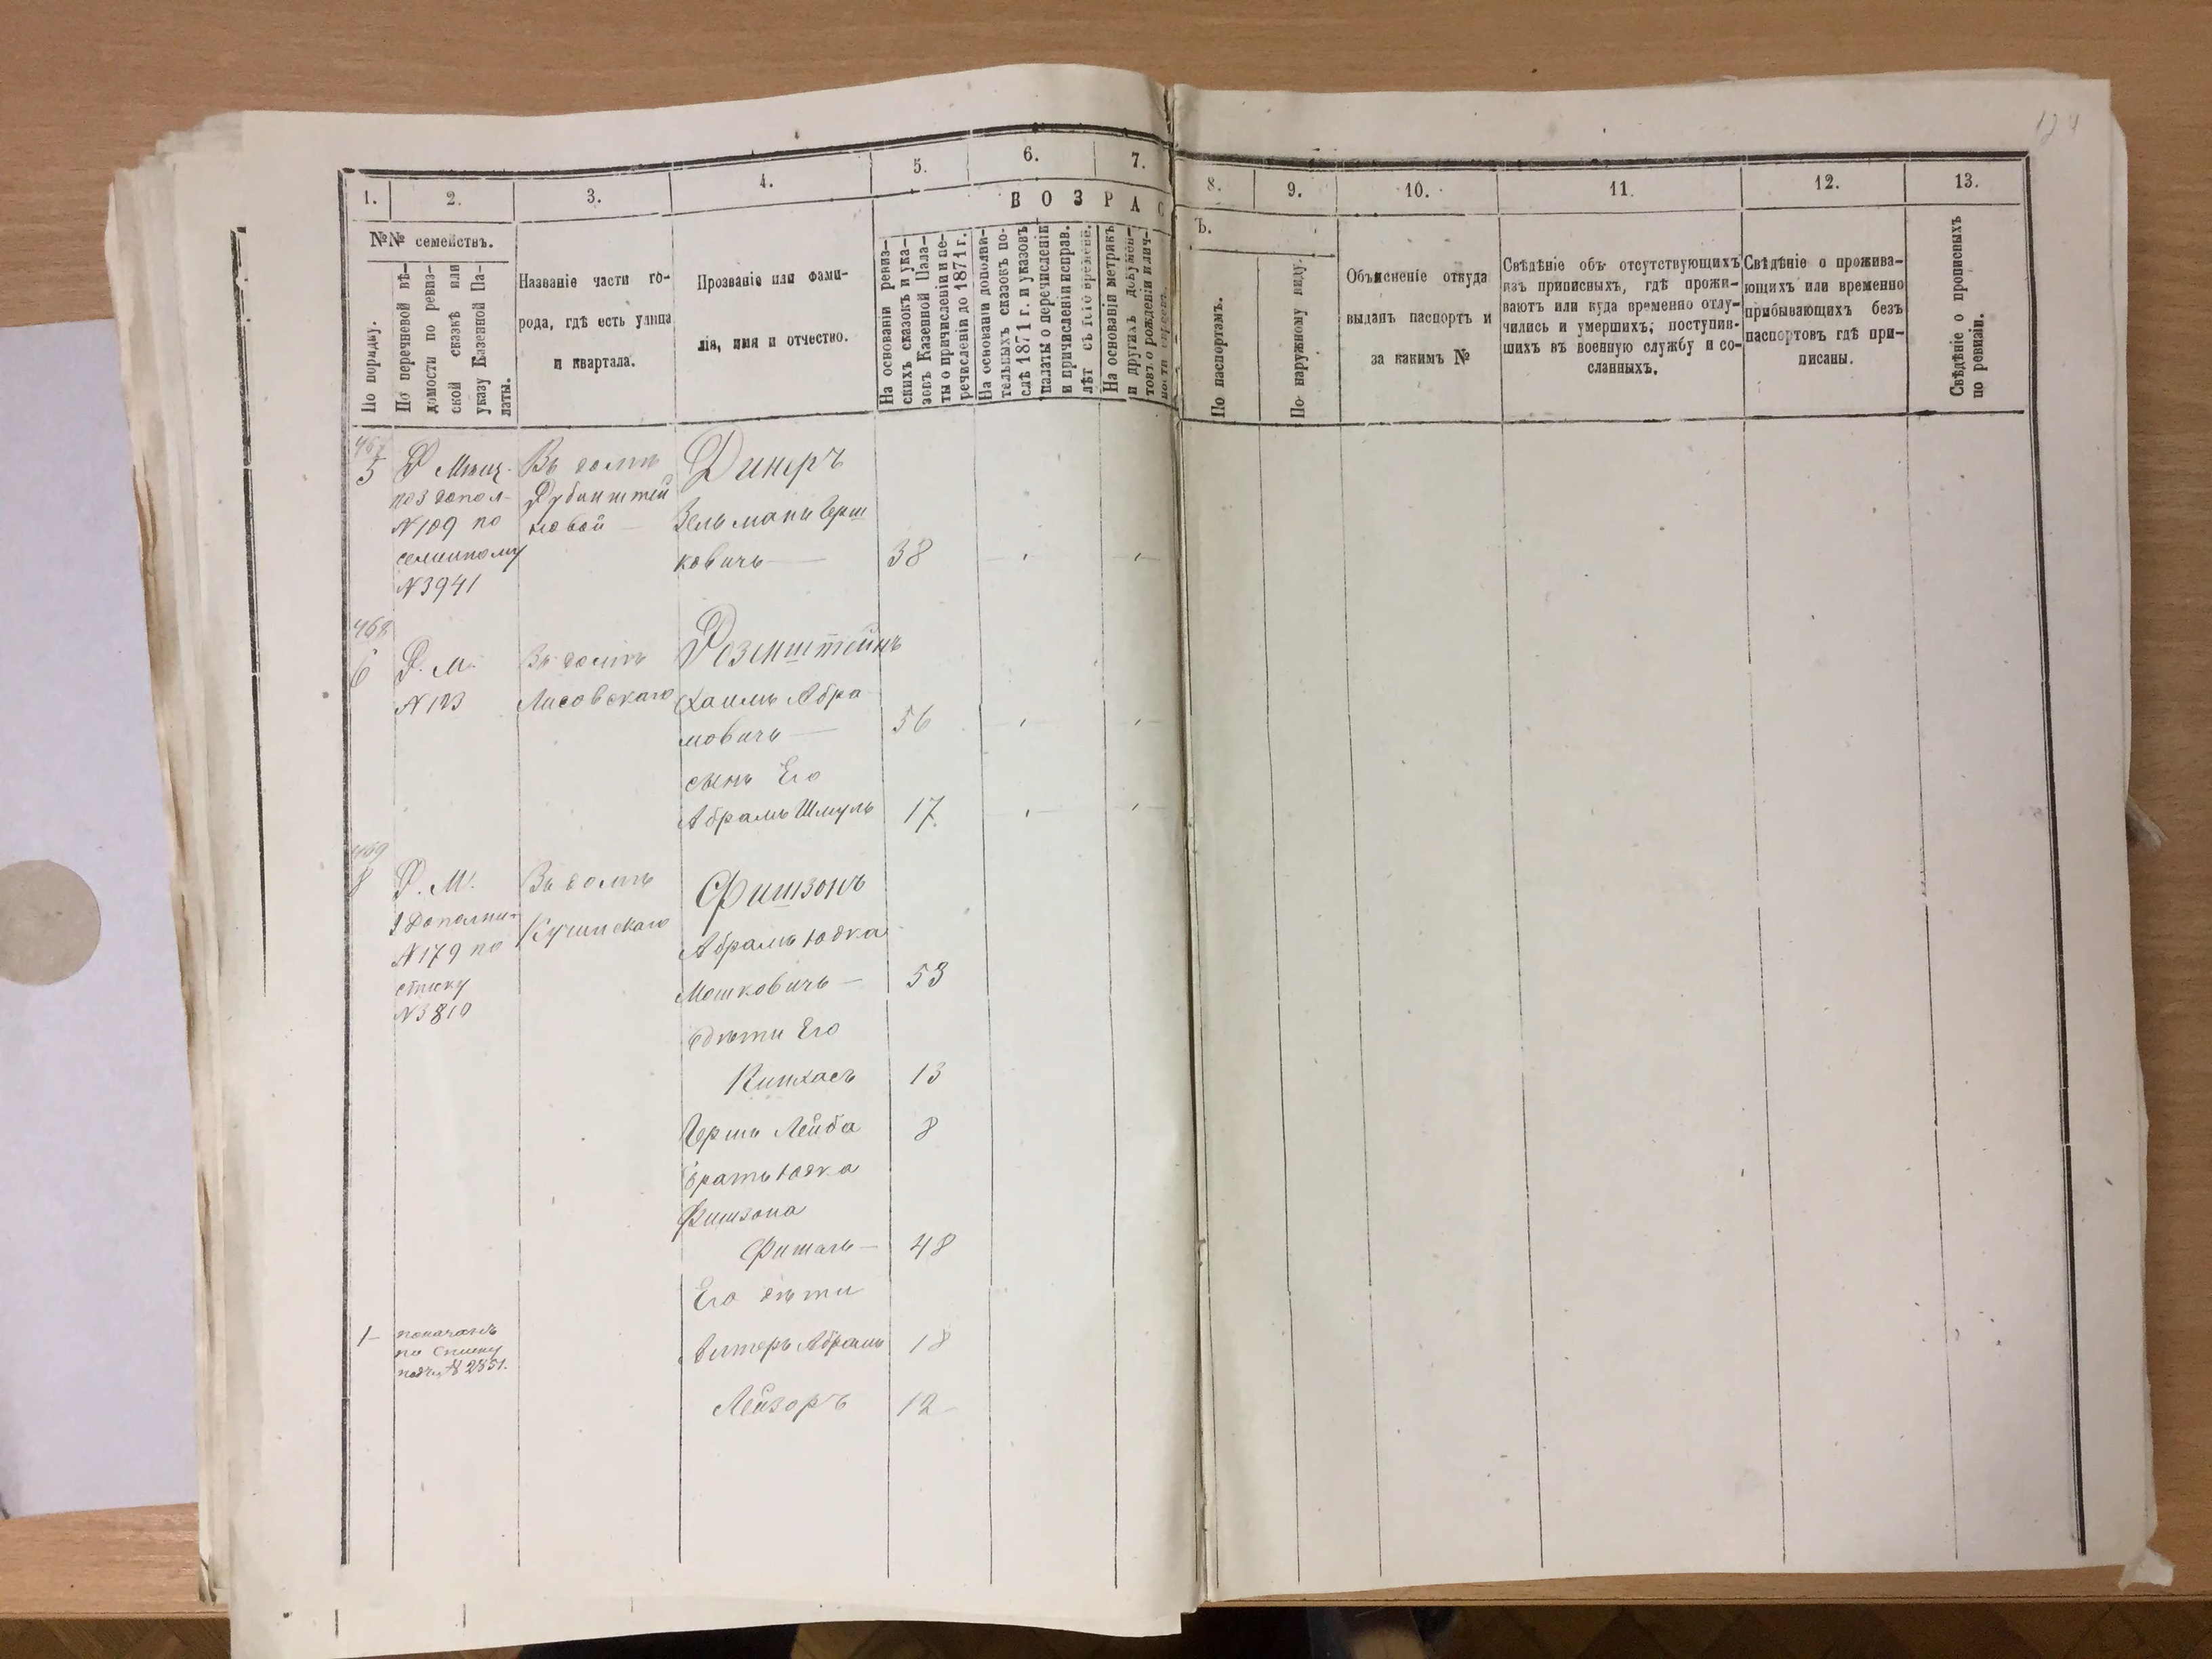 124
1.
2.
3.
4.
5.
6.
7.
8.
9.
10.
11.
12.
13.
ВОЗРАС
Ъ.
№№ семействъ.
По порядку.
По перечневой вѣ-
домости по ревиз-
ской сказкѣ или
указу Казенной Па-
латы.
Названіе части го-
рода, гдѣ есть улица
и квартала.
Прозваніе или фами-
лія, имя и отчество.
На основаніи ревиз-
скихъ сказокъ и ука-
зовъ Казенной Пала-
ты о причисленіи и пе-
речисленіи до 1871 г.
На основаніи дополни-
тельныхъ сказокъ по-
слѣ 1871 г. и указовъ
палаты о перечисленіи
и причисленіи исправ.
лѣт съ того времени.
На основаніи метрикъ
и другихъ докумен-
товъ о рожденіи и лич-
По паспортамъ.
По наружному виду.
Объясненіе откуда
выданъ паспортъ и
за какимъ №
Свѣдѣніе объ отсутствующихъ
изъ приписныхъ, гдѣ прожи-
ваютъ или куда временно отлу-
чились и умершихъ; поступив-
шихъ въ военную службу и со-
сланныхъ.
Свѣдѣніе о прожива-
ющихъ или временно
прибывающихъ безъ
паспортовъ гдѣ при-
писаны.
Свѣдѣніе о прописныхъ
по ревизіи.
467
5
Р Мѣщ.
допол-
№ 109 по
семейному
№ 3941
Въ домѣ
Рубинштей
новой
Динеръ
Зельманъ Герш
ковичъ — 38
468
6
Р. М.
№ 123
Въ домѣ
Лисовскаго
Розенштейнъ
Хаимъ Абра-
мовичъ — 56
сынъ Его
Абрамъ Шмуль 17
469
8
Р. М.
Дополни-
№ 179 по
списку
№ 3810
Въ домѣ
Кушнскаго
Фишзонъ
Абрамъ Юдка
Мошковичъ — 53
дѣти Его
Пинхасъ 13
Гершъ Лейба 8
братъ Юдка
Фишзона
Фишель — 48
Его дѣти
1 —
показанъ
по списку
подъ № 2851.
Абрамъ 18
Лейзоръ 12